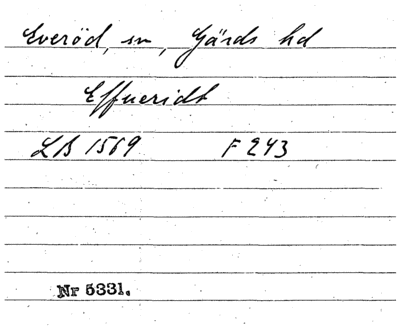 Everöd, sn, Gärds hd
Effueridt
LB 1569 F 243
Nr 5331.